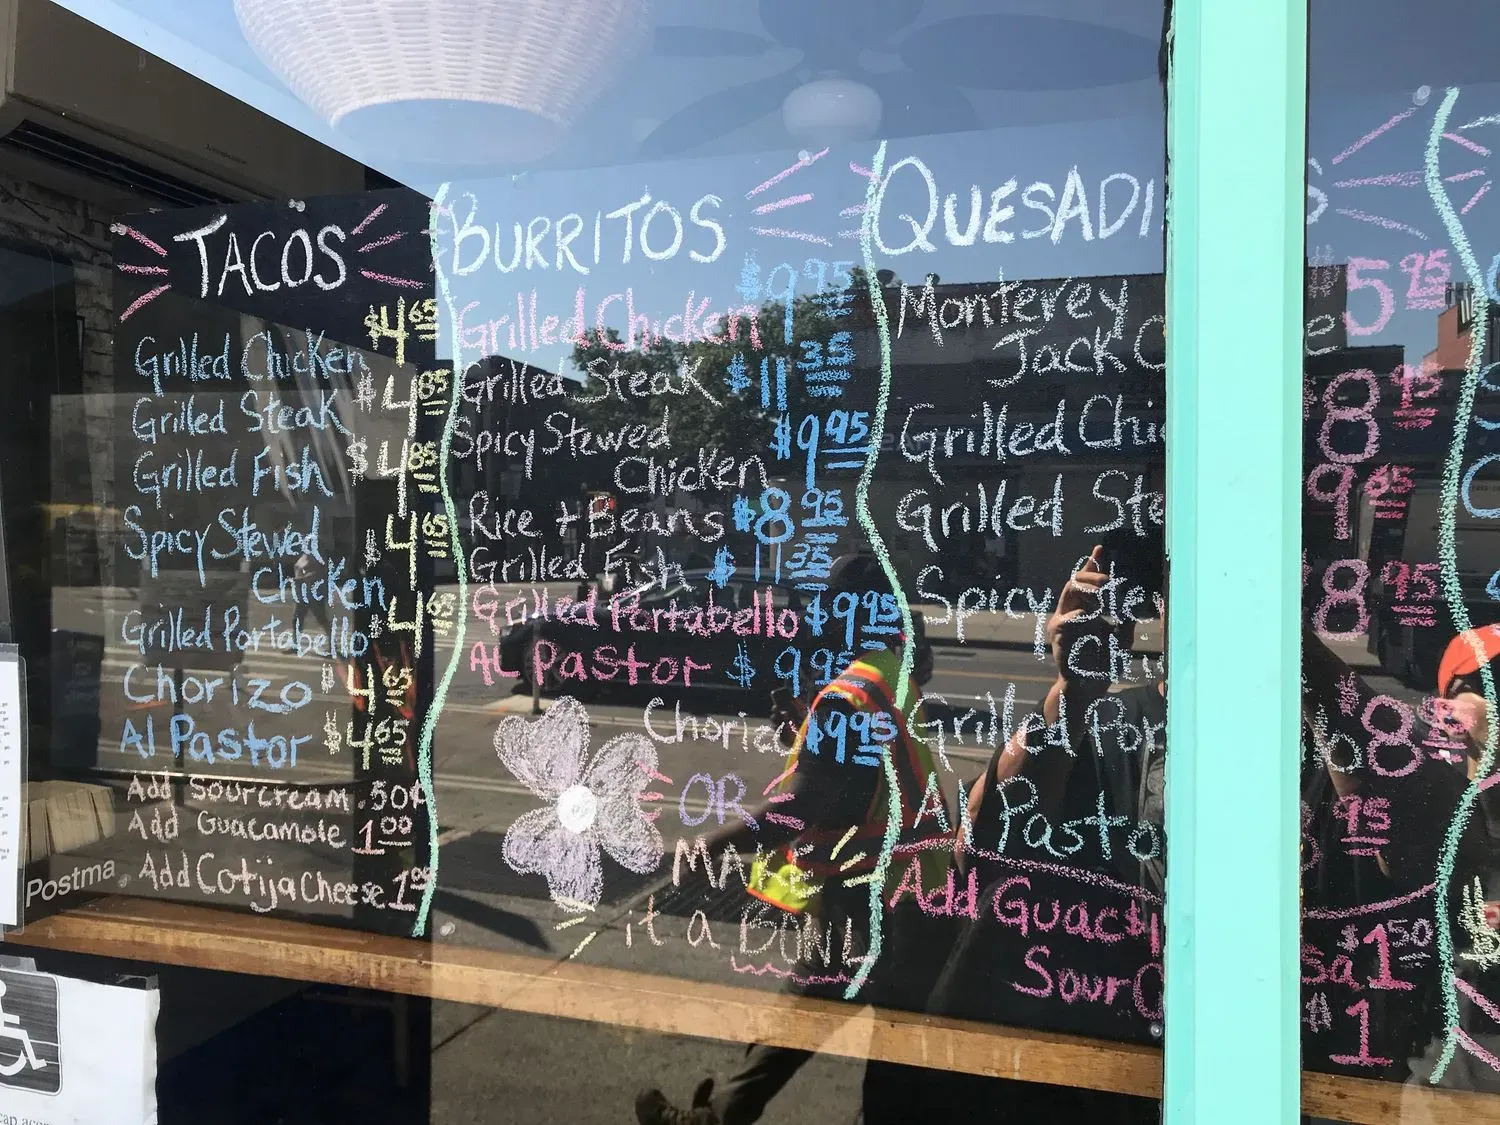 TACOS
$4.65
Grilled Chicken
$4.85
Grilled Steak
$4.85
Grilled Fish
$4.65
Spicy Stewed
Chicken
$4.65
Grilled Portabello
Chorizo $4.65
Al Pastor $4.65
Add Sourcream .50¢
Add Guacamole 1.00
Add Cotija Cheese 1.00
BURRITOS
$9.95
Grilled Chicken
Grilled Steak $11.35
Spicy Stewed
Chicken $9.95
Rice + Beans $8.95
Grilled Fish $11.35
Grilled Portabello $9.95
Al Pastor $9.95
Chorizo $9.95
OR
MAKE
it a BOWL
QUESADI S
Monterey $5.95
Jack C e
Grilled Chi $8.95
Grilled Ste 9.95
Spicy Stew $8.95
Chi
Grilled Por o $8.95
Al Pasto 8.95
Add Guac + sa $1.50
Sour C $1
Postma